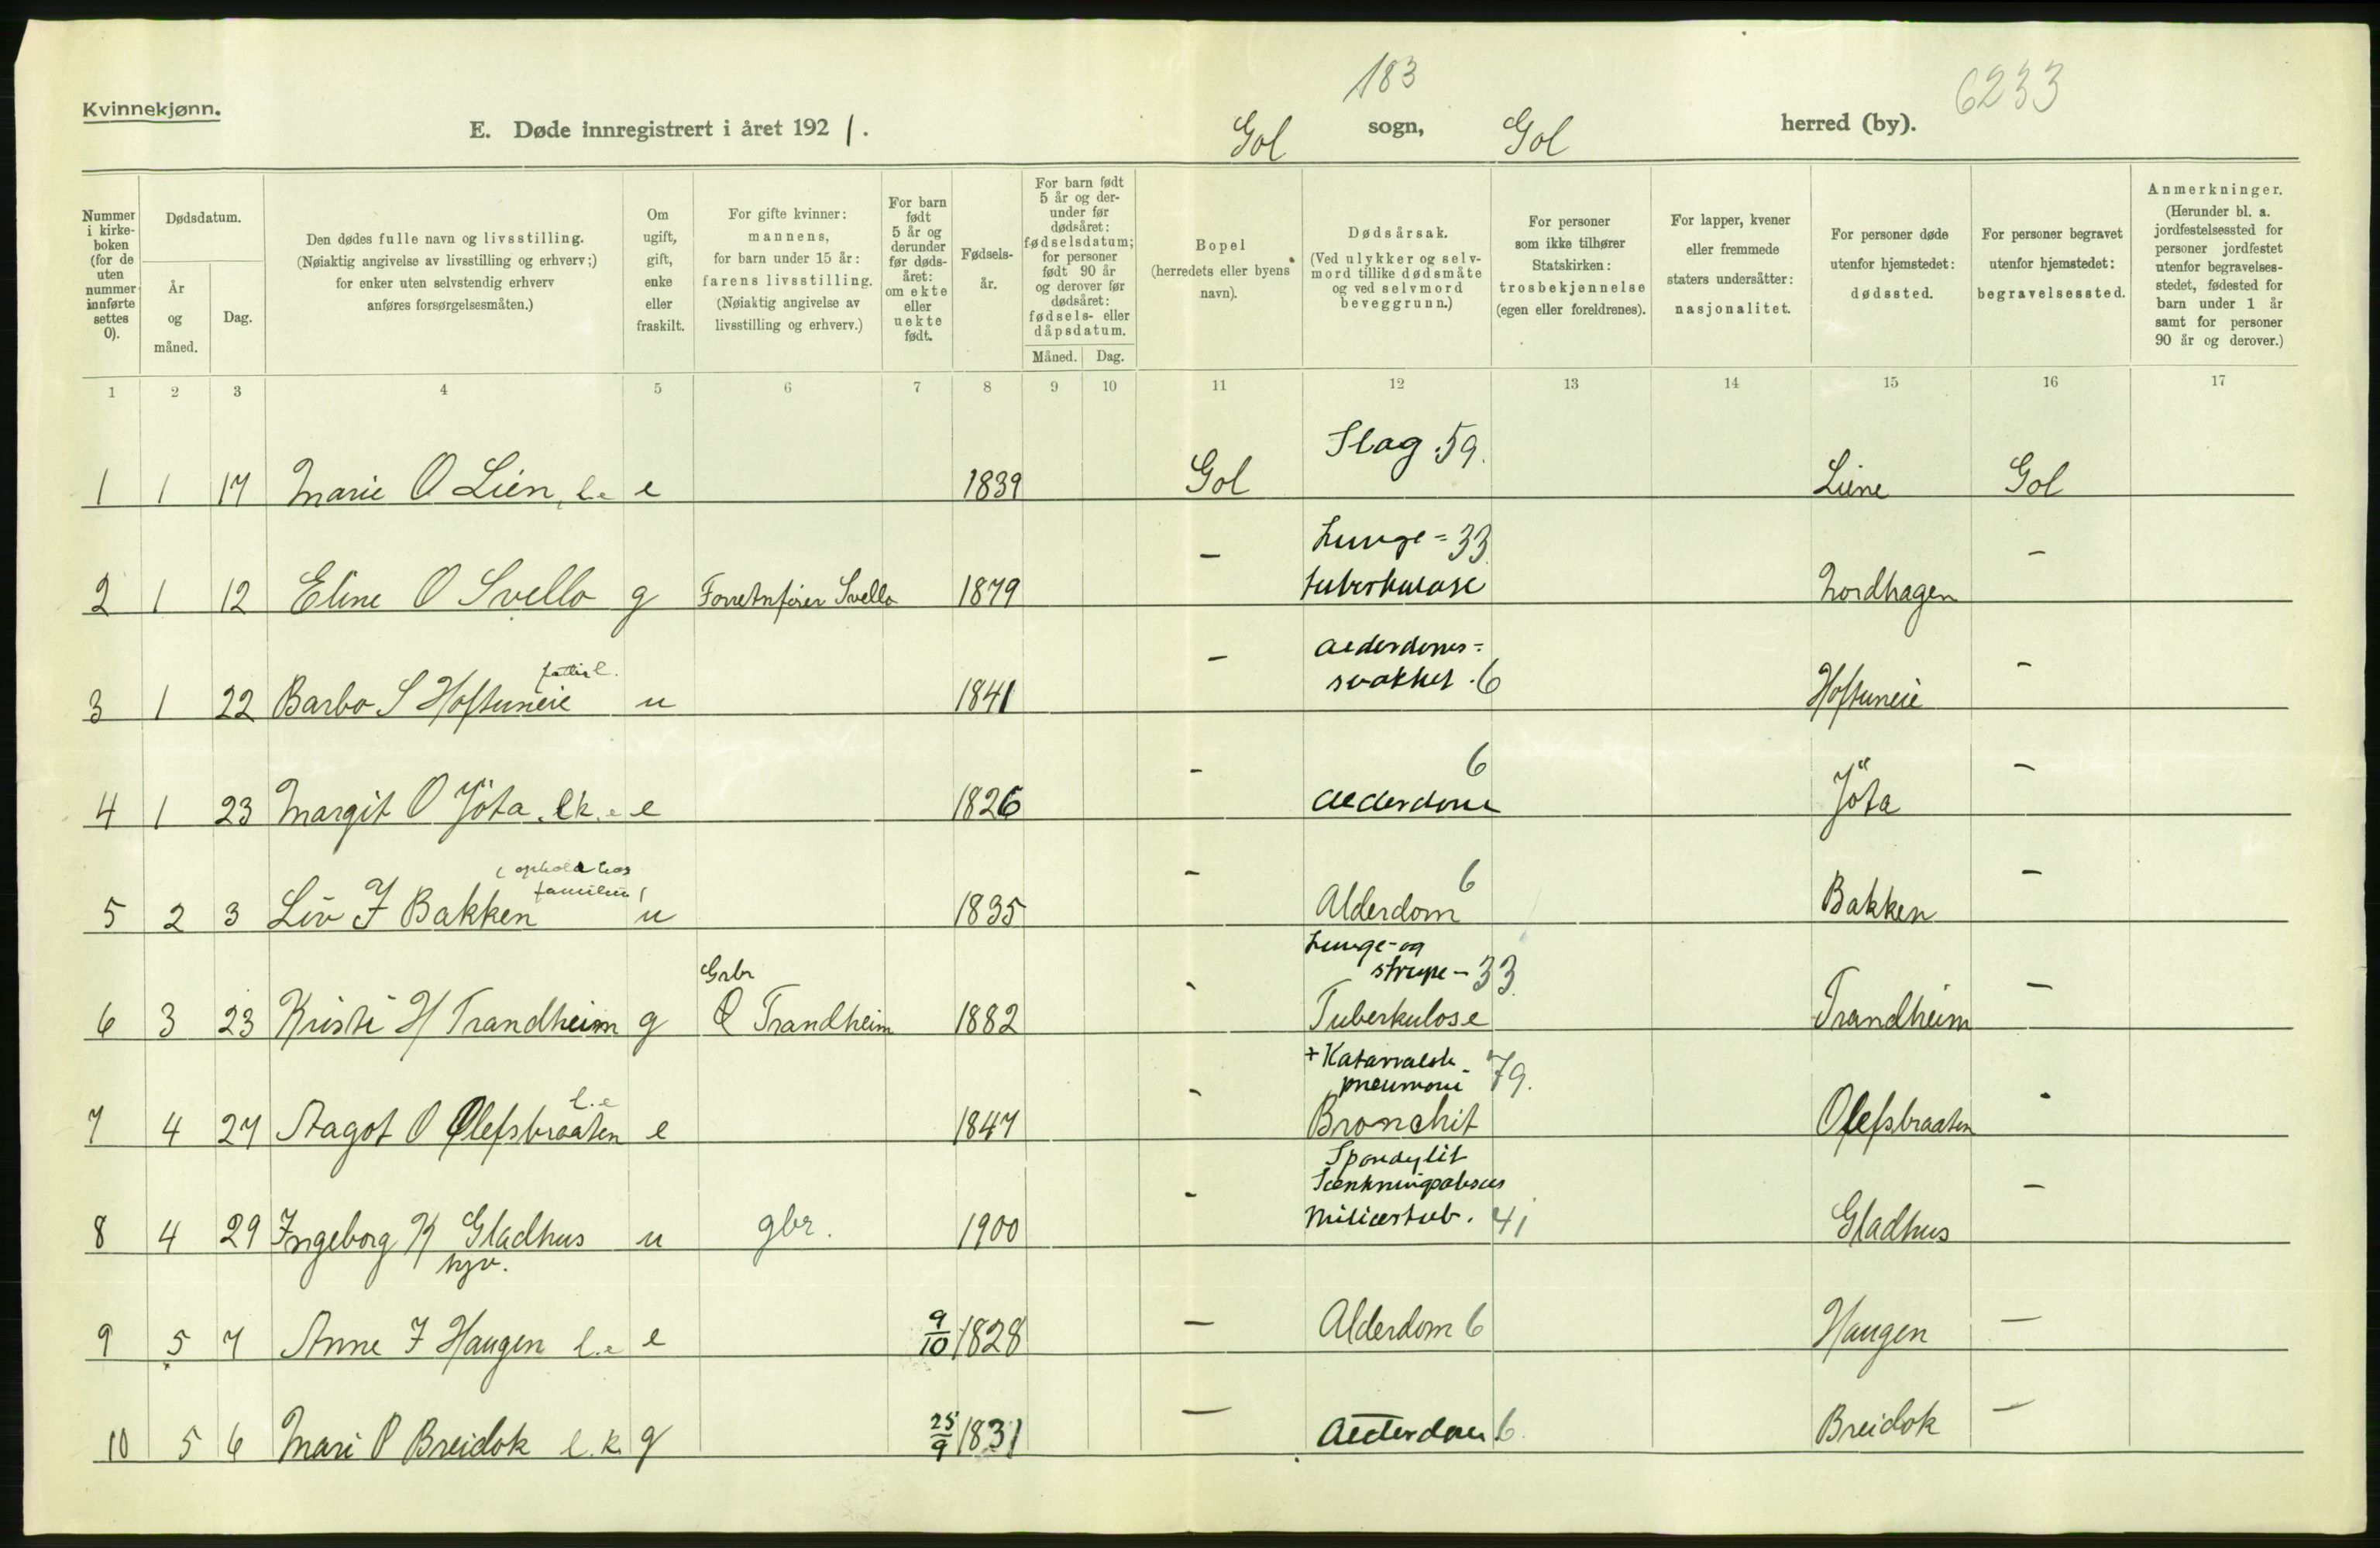 183
6233
Kvinnekjønn.
E. Døde innregistrert i året 1921. Gol sogn, Gol herred (by).
Nummer i kirkeboken (for de uten nummer innførte settes 0).
Dødsdatum.
År og måned.
Dag.
Den dødes fulle navn og livsstilling.
(Nøiaktig angivelse av livsstilling og erhverv;)
for enker uten selvstendig erhverv
anføres forsørgelsesmåten.)
Om ugift, gift, enke eller fraskilt.
For gifte kvinner:
mannens,
for barn under 15 år:
farens livsstilling.
(Nøiaktig angivelse av
livsstilling og erhverv.)
For barn født 5 år og derunder før dødsåret: om ekte eller uekte født.
Fødselsår.
For barn født 5 år og derunder før dødsåret: fødselsdatum; for personer født 90 år og derover før dødsåret: fødsels- eller dåpsdatum.
Måned. Dag.
Bopel
(herredets eller byens
navn).
Dødsårsak.
(Ved ulykker og selv-
mord tillike dødsmåte
og ved selvmord
beveggrunn.)
For personer
som ikke tilhører
Statskirken:
trosbekjennelse
(egen eller foreldrenes).
For lapper, kvener
eller fremmede
staters undersåtter:
nasjonalitet.
For personer døde
utenfor hjemstedet:
dødssted.
For personer begravet
utenfor hjemstedet:
begravelsessted.
Anmerkninger.
(Herunder bl. a.
jordfestelsessted for
personer jordfestet
utenfor begravelses-
stedet, fødested for
barn under 1 år
samt for personer
90 år og derover.)
1 2 3 4 5 6 7 8 9 10 11 12 13 14 15 16 17
Slag 59.
1 1 17 Marie O Lien, l.e e 1839 Gol Liene Gol
Lunge= 33
2 1 12 Eline O Svello g Forretnfører Svello 1879 - tuberkulose Nordhagen -
fattigl. Alderdoms=
3 1 22 Barbo S Hoftuneie u 1841 - svakhet. 6 Hoftuneie -
6
4 1 23 Margit O Jöta lk.e e 1826 - Alderdom Jöta -
(ophold hos
familien) 6
5 2 3 Liv J Bakken u 1835 - Alderdom Bakken -
Lunge- og
Gbr strupe- 33
6 3 23 Kristi H Trandheim g O Trandheim 1882 - Tuberkulose Trandheim -
+ Katarralsk
l.e pneumoni 79.
7 4 27 Aagot O Olefsbraaten e 1847 - Bronchit Olefsbraaten -
Spondylit
Sænkningsabsces
8 4 29 Ingeborg K Gladhus u gbr. 1900 - Miliærtub. 41 Gladhus -
syv.
9 5 7 Anne J Haugen l.e e 9/10 1828 - Alderdom 6 Haugen -
10 5 6 Mari O Breidok l.k. g 25/9 1831 - Alderdom 6. Breidok -